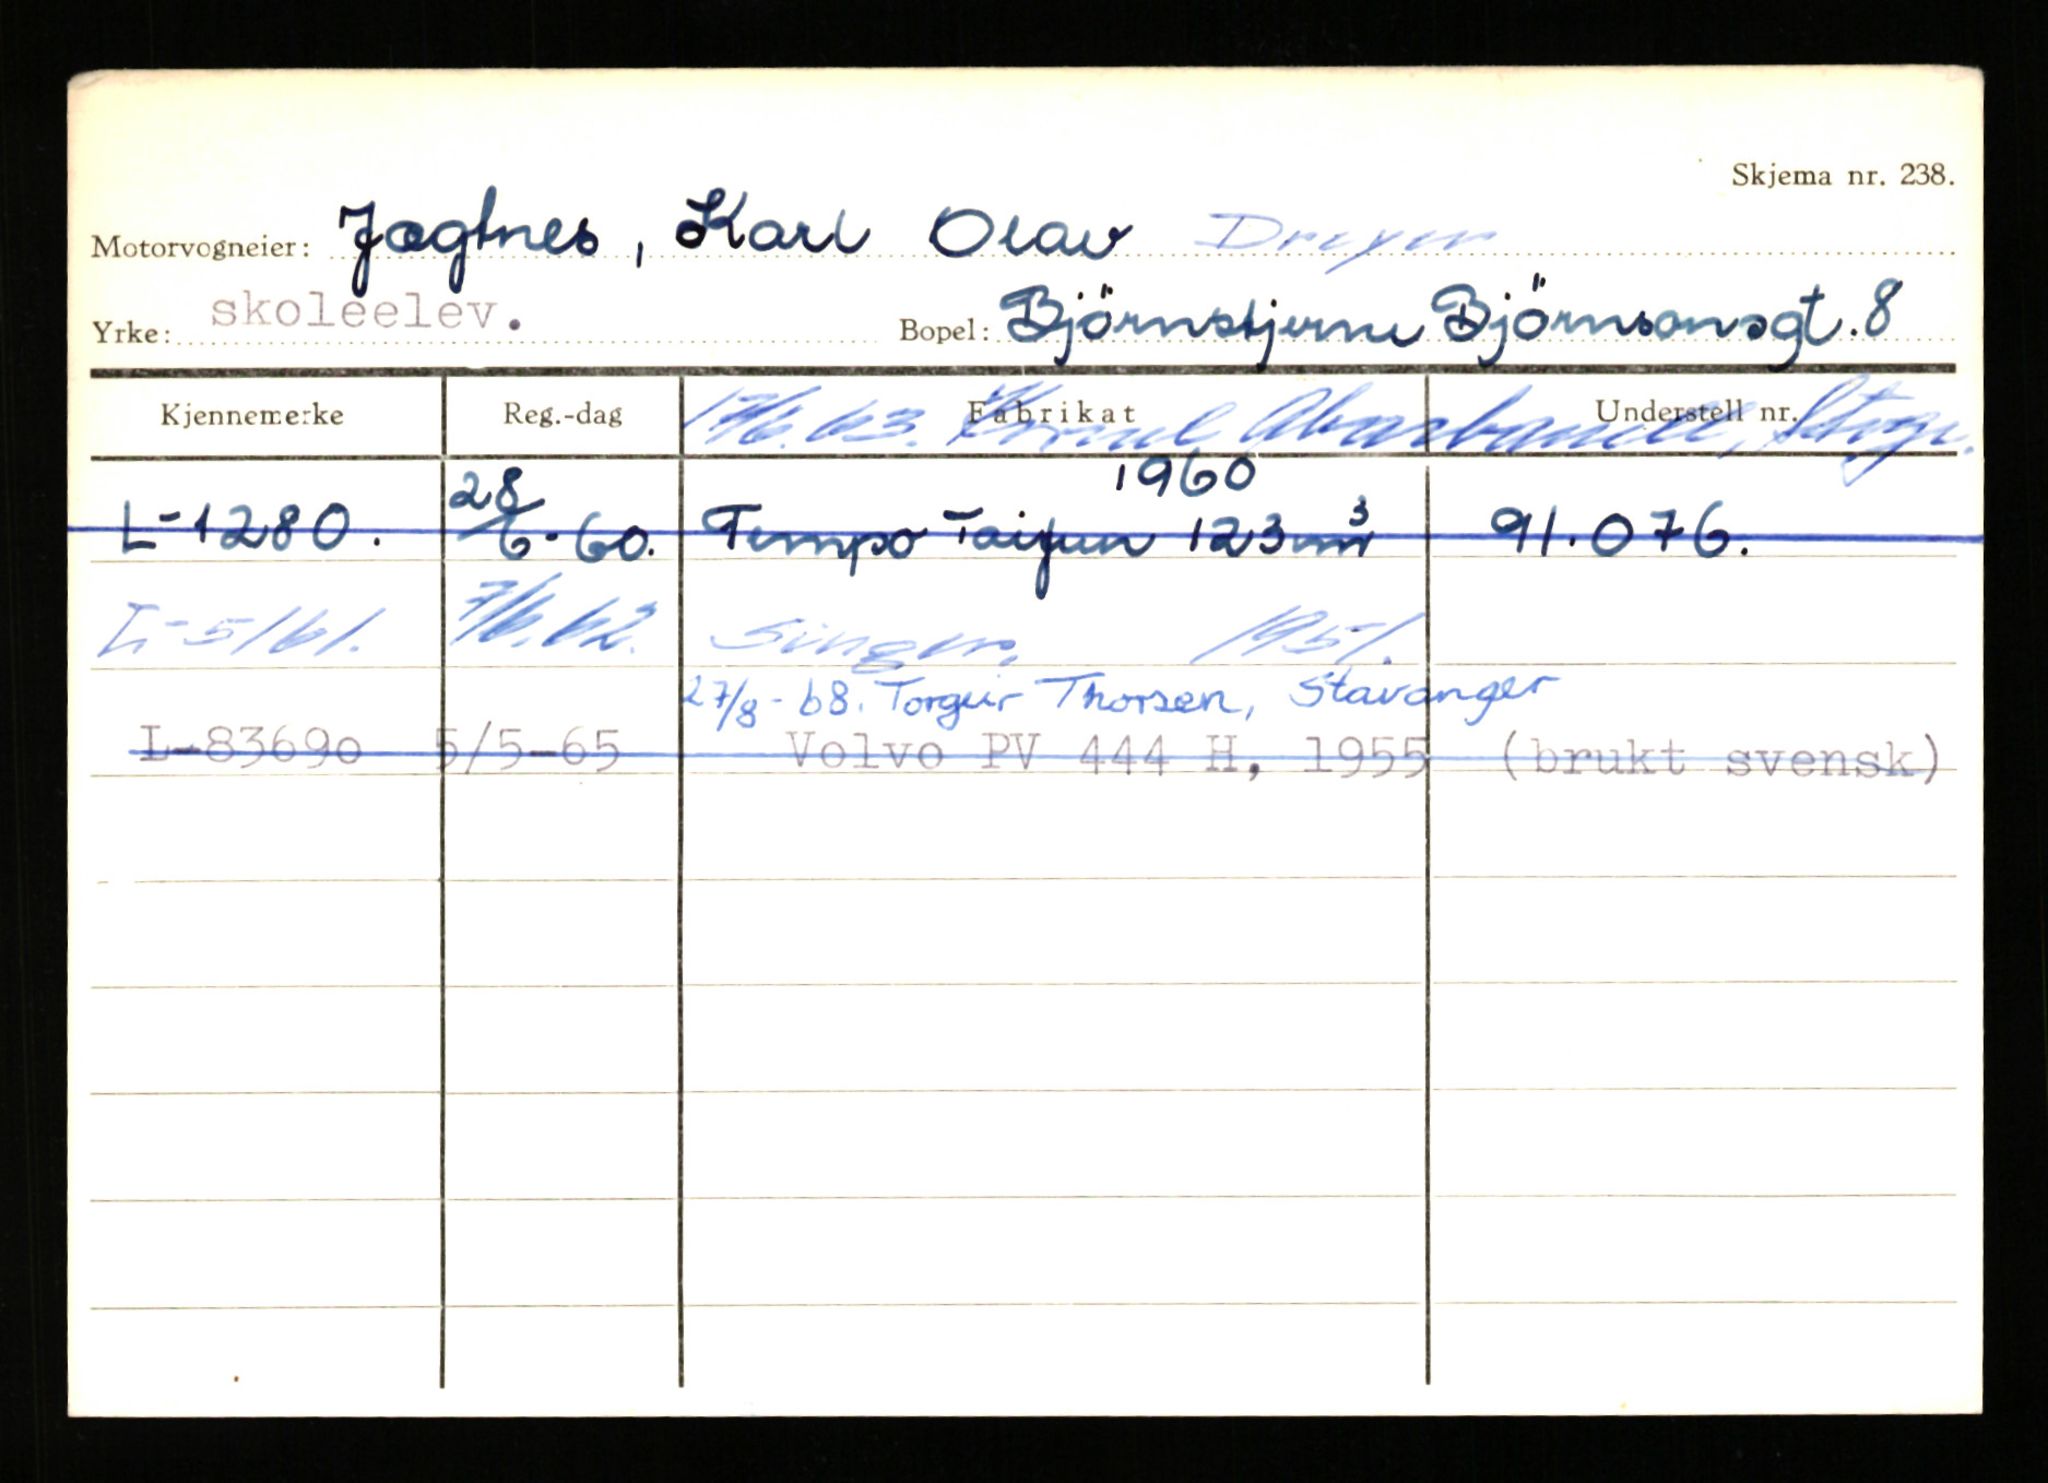 Skjema nr. 238.
Motorvogneier: Jægtnes, Karl Olav Dreyer
Yrke: skoleelev. Bopel: Björnstjerne Björnsonsgt. 8
Kjennemerke Reg.-dag Fabrikat Understell nr.
17/6.63. Svgr.
1960
L-1280. 28/6-60. Tempo Taifun 123 cm³ 91.076.
L-5161. 7/6.62. Singer. 1951.
27/8-68. Torgeir Thorsen, Stavanger
L-83690 5/5-65 Volvo PV 444 H, 1955 (brukt svensk)